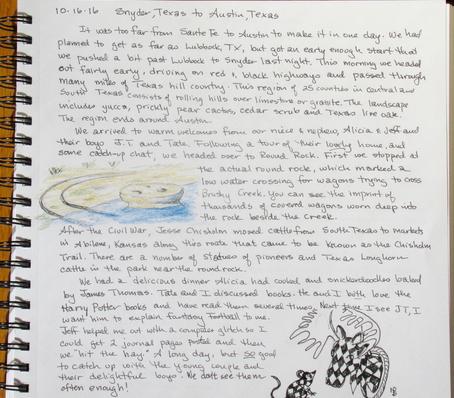 10-16-16 Snyder, Texas to Austin, Texas
It was too far from Sante Fe to Austin to make it in one day. We had
planned to get as far as Lubbock, TX, but got an early enough start that
we pushed a bit past Lubbock to Snyder last night. This morning we headed
out fairly early, driving on red & black highways and passed through
many miles of Texas hill country. This region of 25 counties in central and
South Texas consists of rolling hills over limestone or granite. The landscape
includes yucca, prickly pear cactus, cedar scrub and Texas live oak.
The region ends around Austin.
We arrived to warm welcomes from our niece & nephew, Alicia & Jeff and
their boys J.T. and Tate. Following a tour of their lovely home, and
some catch-up chat, we headed over to Round Rock. First we stopped at
the actual round rock, which marked a
low water crossing for wagons trying to cross
Brushy Creek. You can see the imprint of
thousands of covered wagons worn deep into
the rock beside the creek.
After the Civil War, Jesse Chisholm moved cattle from South Texas to markets
in Abilene, Kansas along this route that came to be known as the Chisholm
Trail. There are a number of statues of pioneers and Texas Longhorn
cattle in the park near the round rock.
We had a delicious dinner Alicia had cooked and snickerdoodles baked
by James Thomas. Tate and I discussed books. He and I both love the
Harry Potter books and have read them several times. Next time I see JT, I
want him to explain Fantasy Football to me.
Jeff helped me out with a computer glitch so I
could get 2 journal pages posted and then
we "hit the hay." A long day, but so good
to catch up with the young couple and
their delightful boys. We don't see them
often enough!